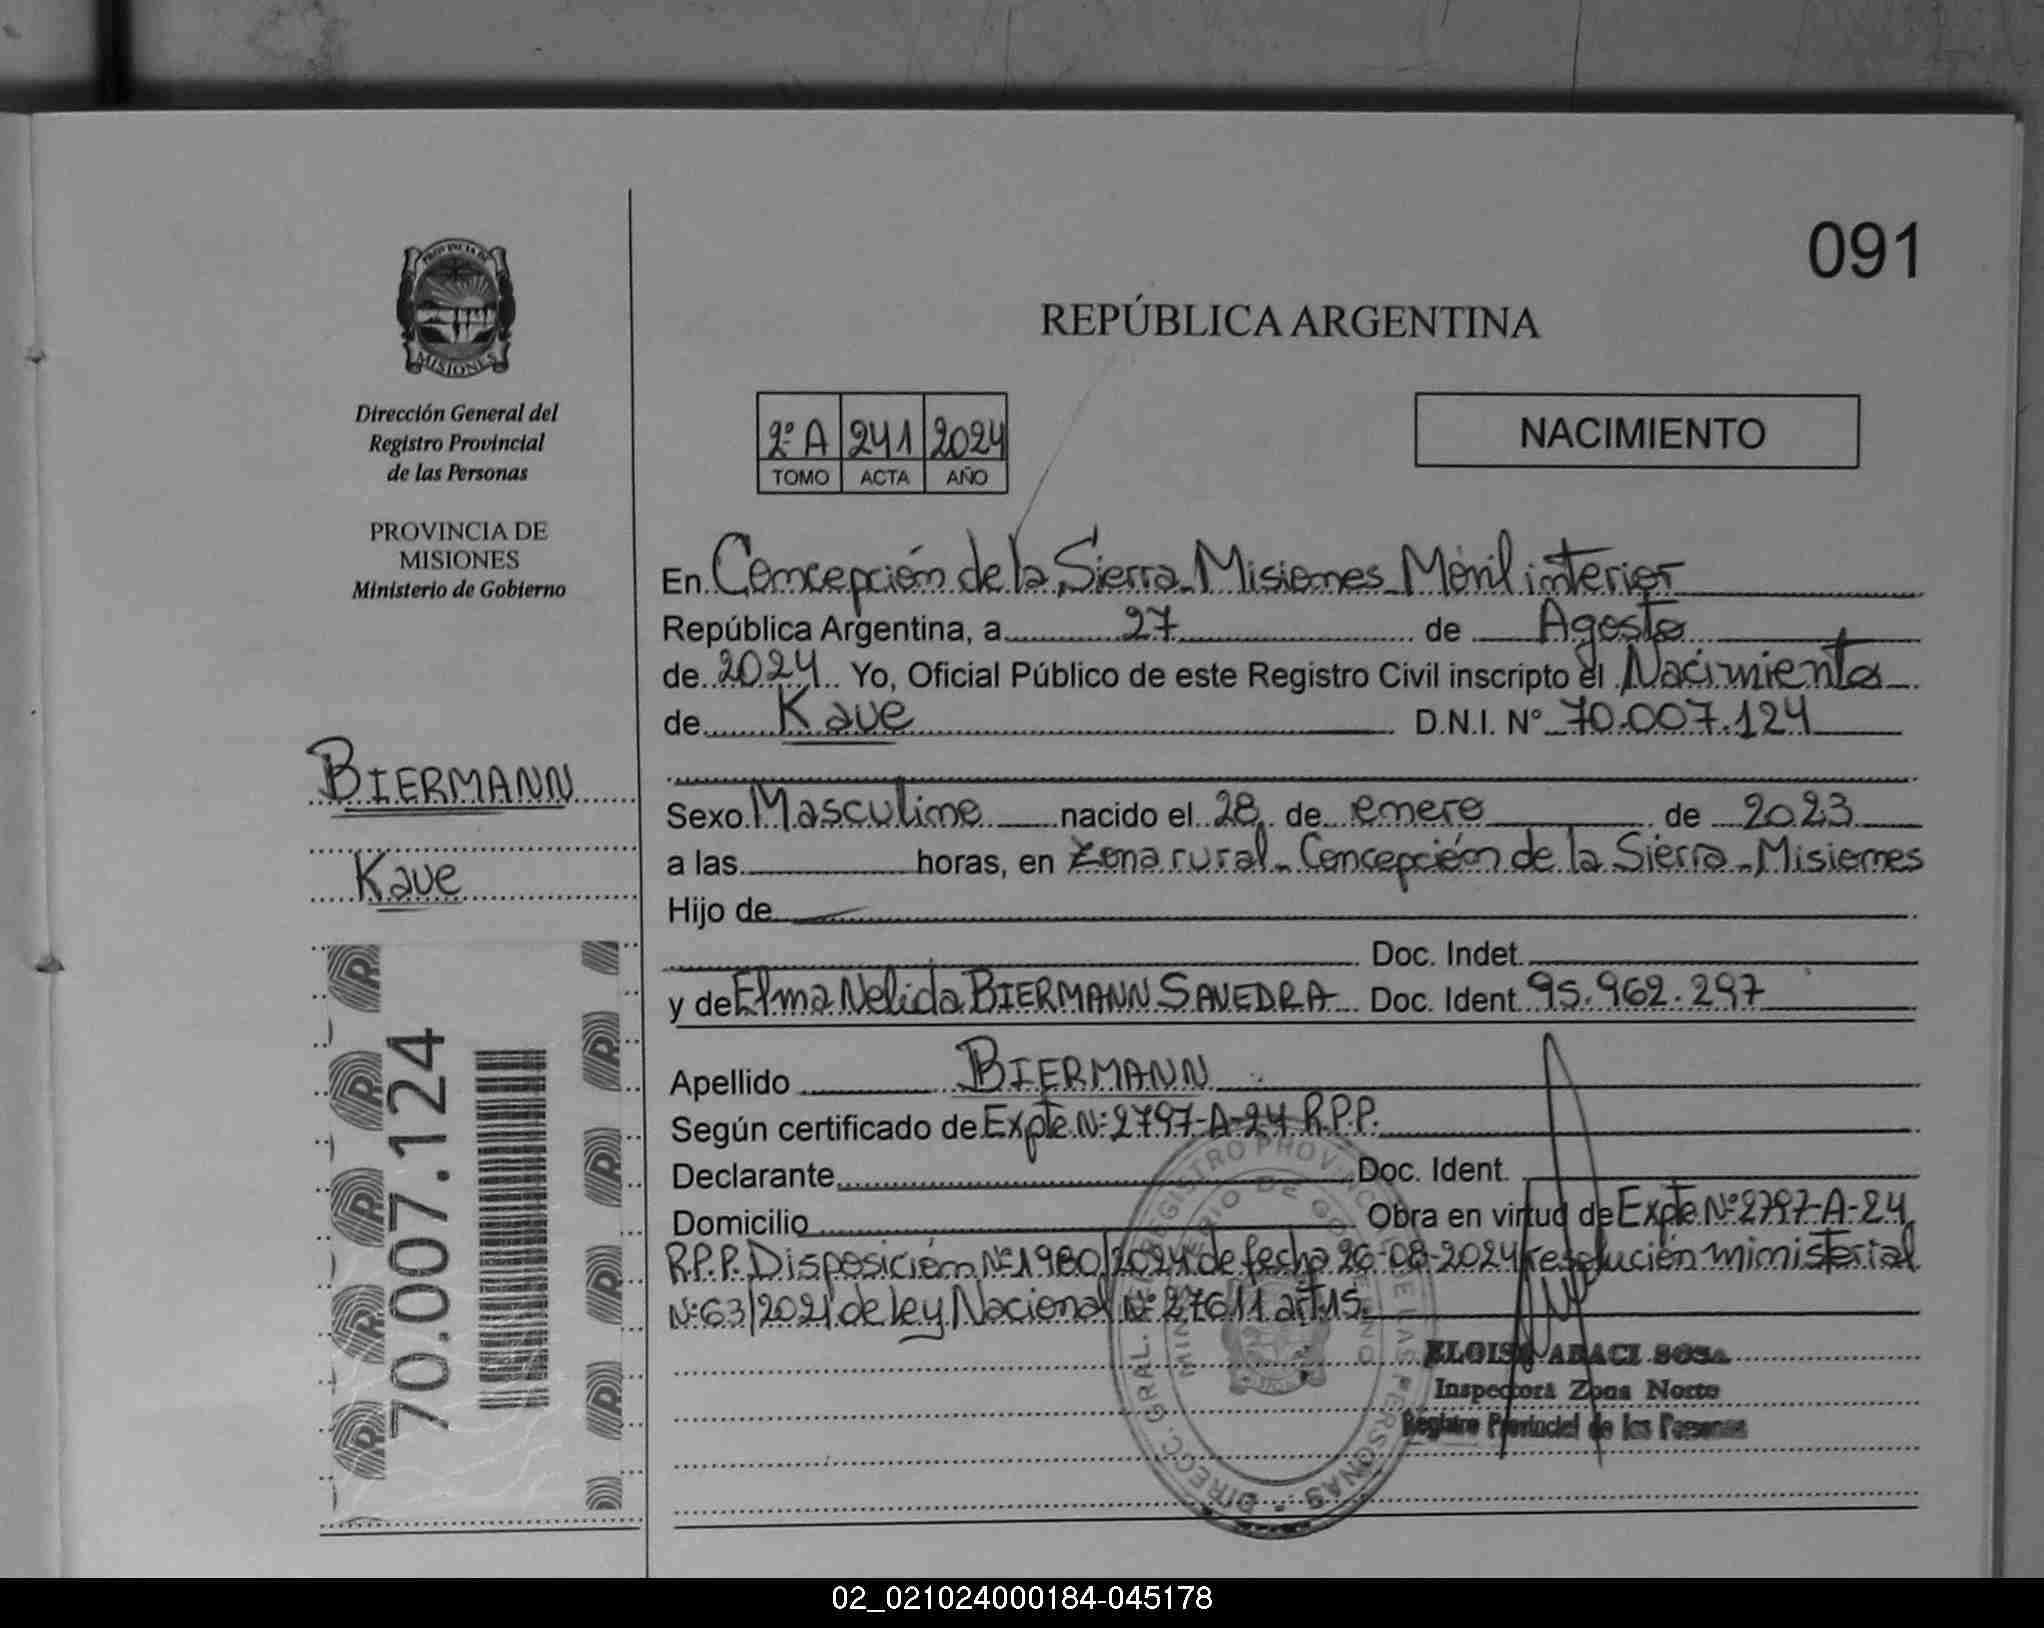 091
PROVINCIA DE
MISIONES
REPÚBLICA ARGENTINA
Dirección General del
Registro Provincial
de las Personas
PROVINCIA DE
MISIONES
Ministerio de Gobierno
2º A 241 2024
TOMO ACTA AÑO
NACIMIENTO
En Concepción de la Sierra - Misiones - Móvil interior
República Argentina, a 27 de Agosto
de 2024 Yo, Oficial Público de este Registro Civil inscripto el Nacimiento
de Kave D.N.I. N° 70.007.124
BIERMANN
Kave
Sexo Masculino nacido el 28 de enero de 2023
a las horas, en Zona rural - Concepción de la Sierra - Misiones
Hijo de
Doc. Indet.
y de Elma Nelida BIERMANN SAVEDRA Doc. Ident. 95.962.297
Apellido BIERMANN
Según certificado de Expte Nº 2797-A-24 R.P.P.
Declarante Doc. Ident.
Domicilio Obra en virtud de Expte Nº 2797-A-24
R.P.P. Disposición Nº 1980/2024 de fecha 26-08-2024 resolución ministerial
Nº 63/2021 de ley Nacional Nº 27611 art 15.
70.007.124
ELOISA ABACI SOSA
Inspectora Zona Norte
Registro Provincial de las Personas
DIRECC. GRAL. REGISTRO PROVINCIAL DE LAS PERSONAS
02_021024000184-045178